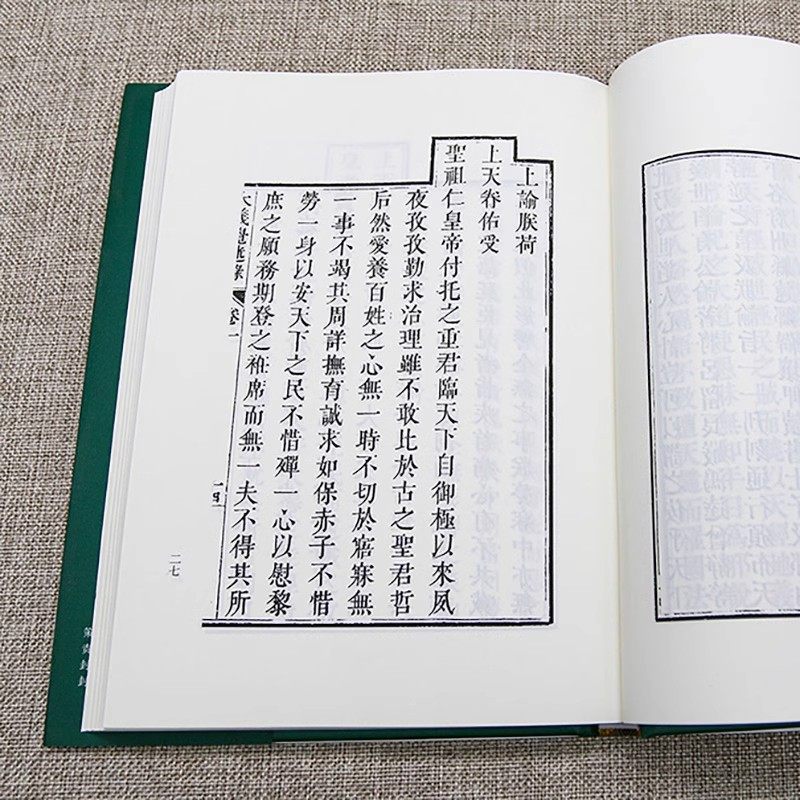 上諭朕荷
上天眷佑受
聖祖仁皇帝付托之重君臨天下自御極以來夙
夜孜孜勤求治理雖不敢比於古之聖君哲
后然愛養百姓之心無一時不切於寤寐無
一事不竭其周詳撫育誠求如保赤子不惜
勞一身以安天下之民不惜殫一心以慰黎
庶之願務期登之袵席而無一夫不得其所
大義覺迷錄 卷一
二七